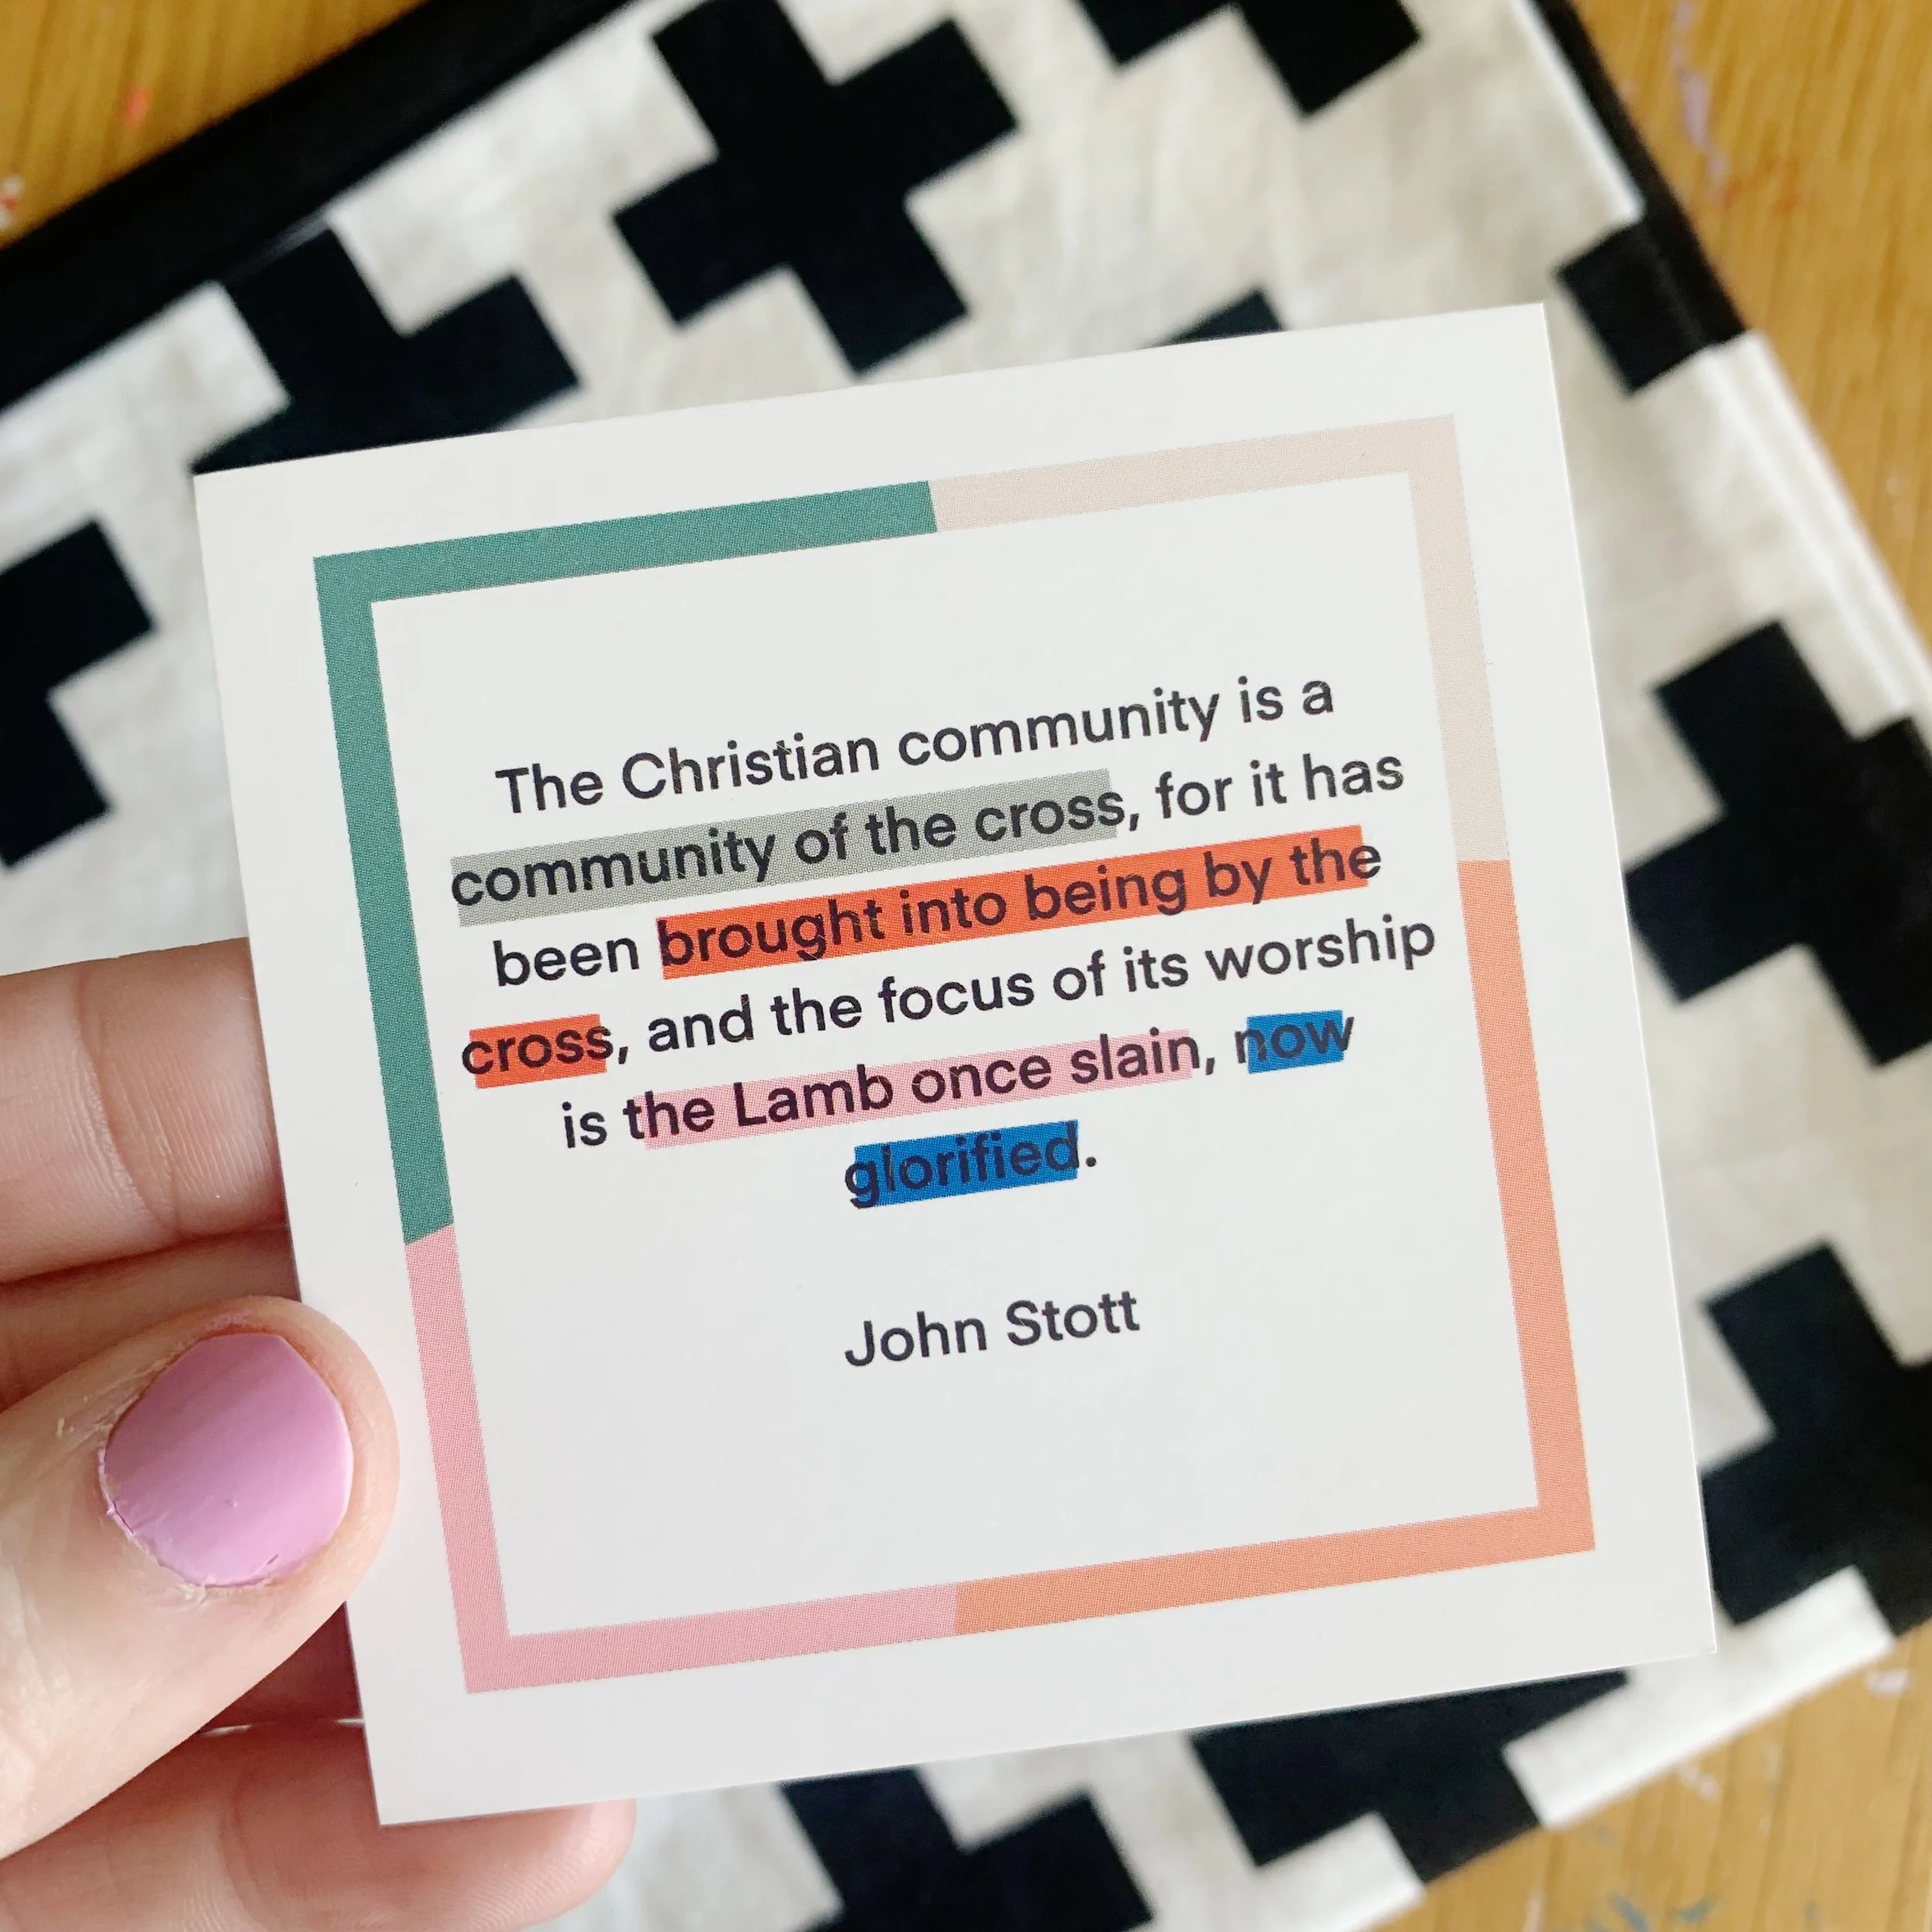 The Christian community is a
community of the cross, for it has
been brought into being by the
cross, and the focus of its worship
is the Lamb once slain, now
glorified.
John Stott